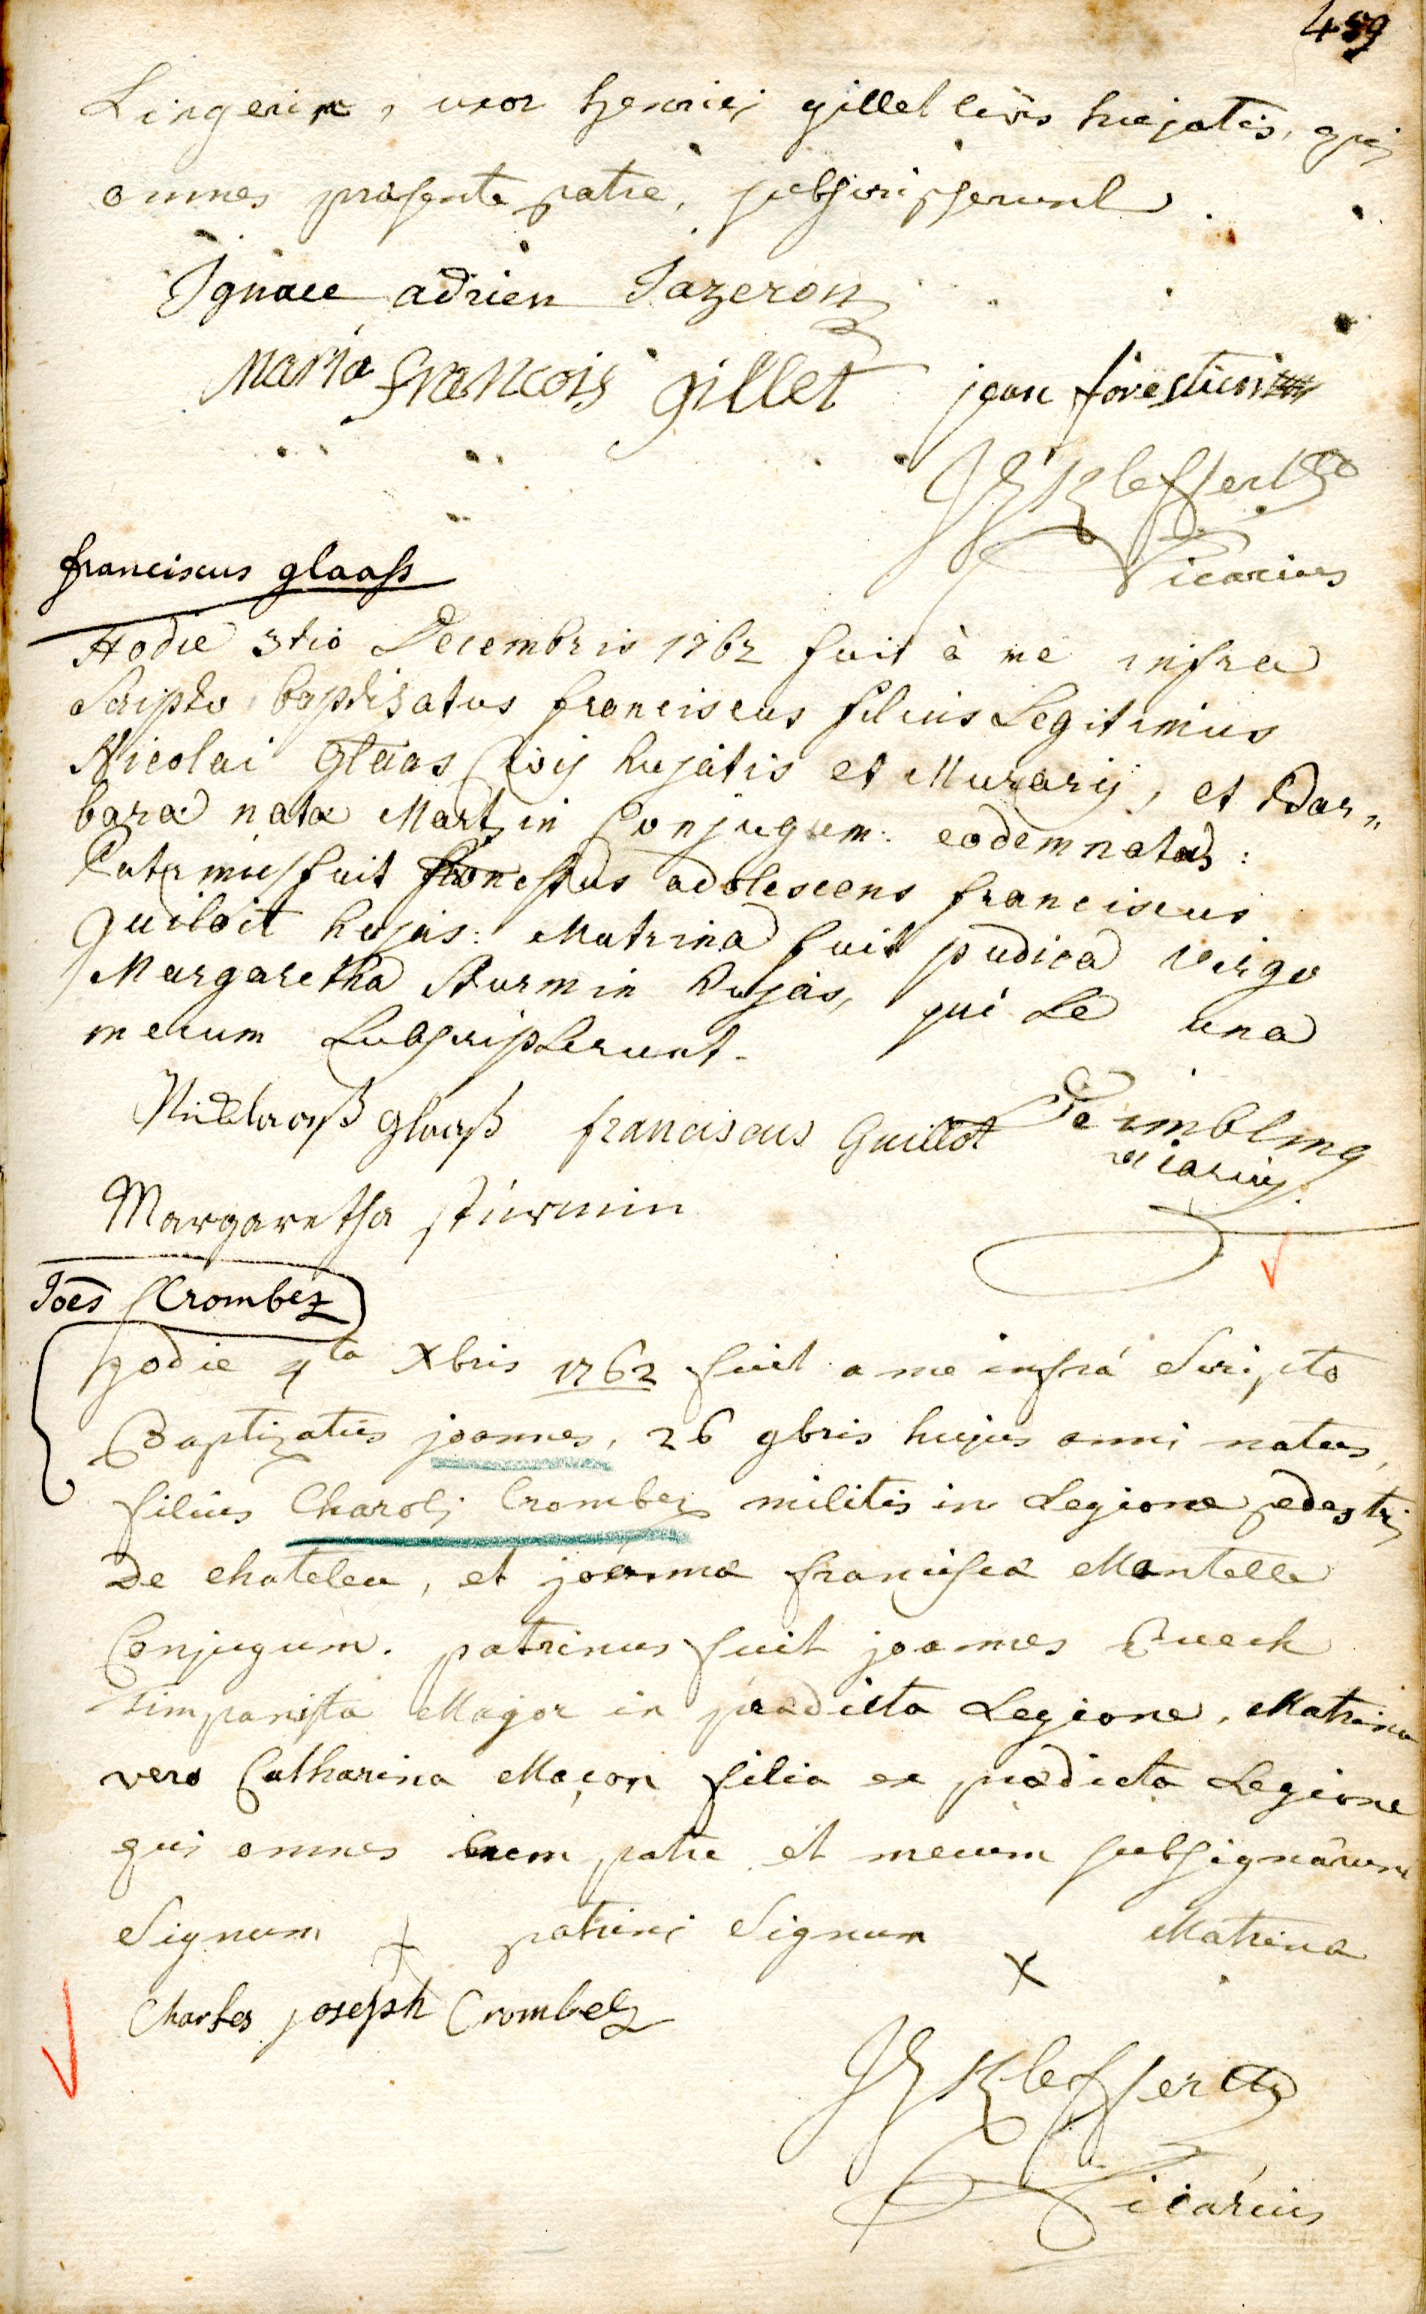 459
Lingerin, uxor henrici gillet civis hujatis, qui
omnes præsente patre, subscripserunt.
Ignace adrien Jazeron
Maria francois gillet jean forestier
Vicarius
franciscus glaass
Hodie 3tio Decembris 1762 fuit à me infra
Scripto baptizatus franciscus filius Legitimus
Nicolai Glaas Civis hujatis et Murarij, et Bar„
bara nata Martzin Conjugum: eodem natus:
Patrinus fuit honestus adolescens franciscus
Guiloit hujas: Matrina fuit pudica virgo
Margaretha Sturmin hujas, qui se una
mecum Subscripserunt.
glaaß franciscus Guillot Deimbling
vicarius
Margaretha stürmin
Joēs Crombez
hodie 4ta Xbris 1762 fuit a me infrá Scripto
Baptizatus joannes, 26 9bris hujus anni natus,
filius Charoli Crombez militis in Legione pedestri
De chatelea, et joannæ franciscæ Mantelle
Conjugum. patrinus fuit joannes Bueck
timpanista Major in prædicta Legione, Matrina
vero Catharina Maçon filia ex prædicta Legione
qui omnes cum patre et mecum subsignârunt
Signum + patrini Signum x Matrinæ
Charles joseph Crombez
Vicarius